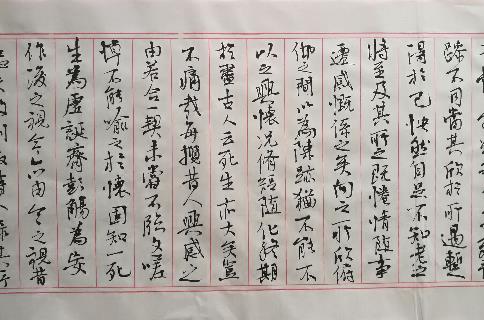 躁不同當其欣於所遇暫
得於己快然自足不知老之
將至及其所之既倦情隨事
遷感慨係之矣向之所欣俯
仰之間以為陳跡猶不能不
以之興懷況脩短隨化終期
於盡古人云死生亦大矣豈
不痛哉每攬昔人興感之
由若合一契未嘗不臨文嗟
悼不能喻之於懷固知一死
生為虛誕齊彭殤為妄
作後之視今亦由今之視昔
悲夫故列敘時人錄其所